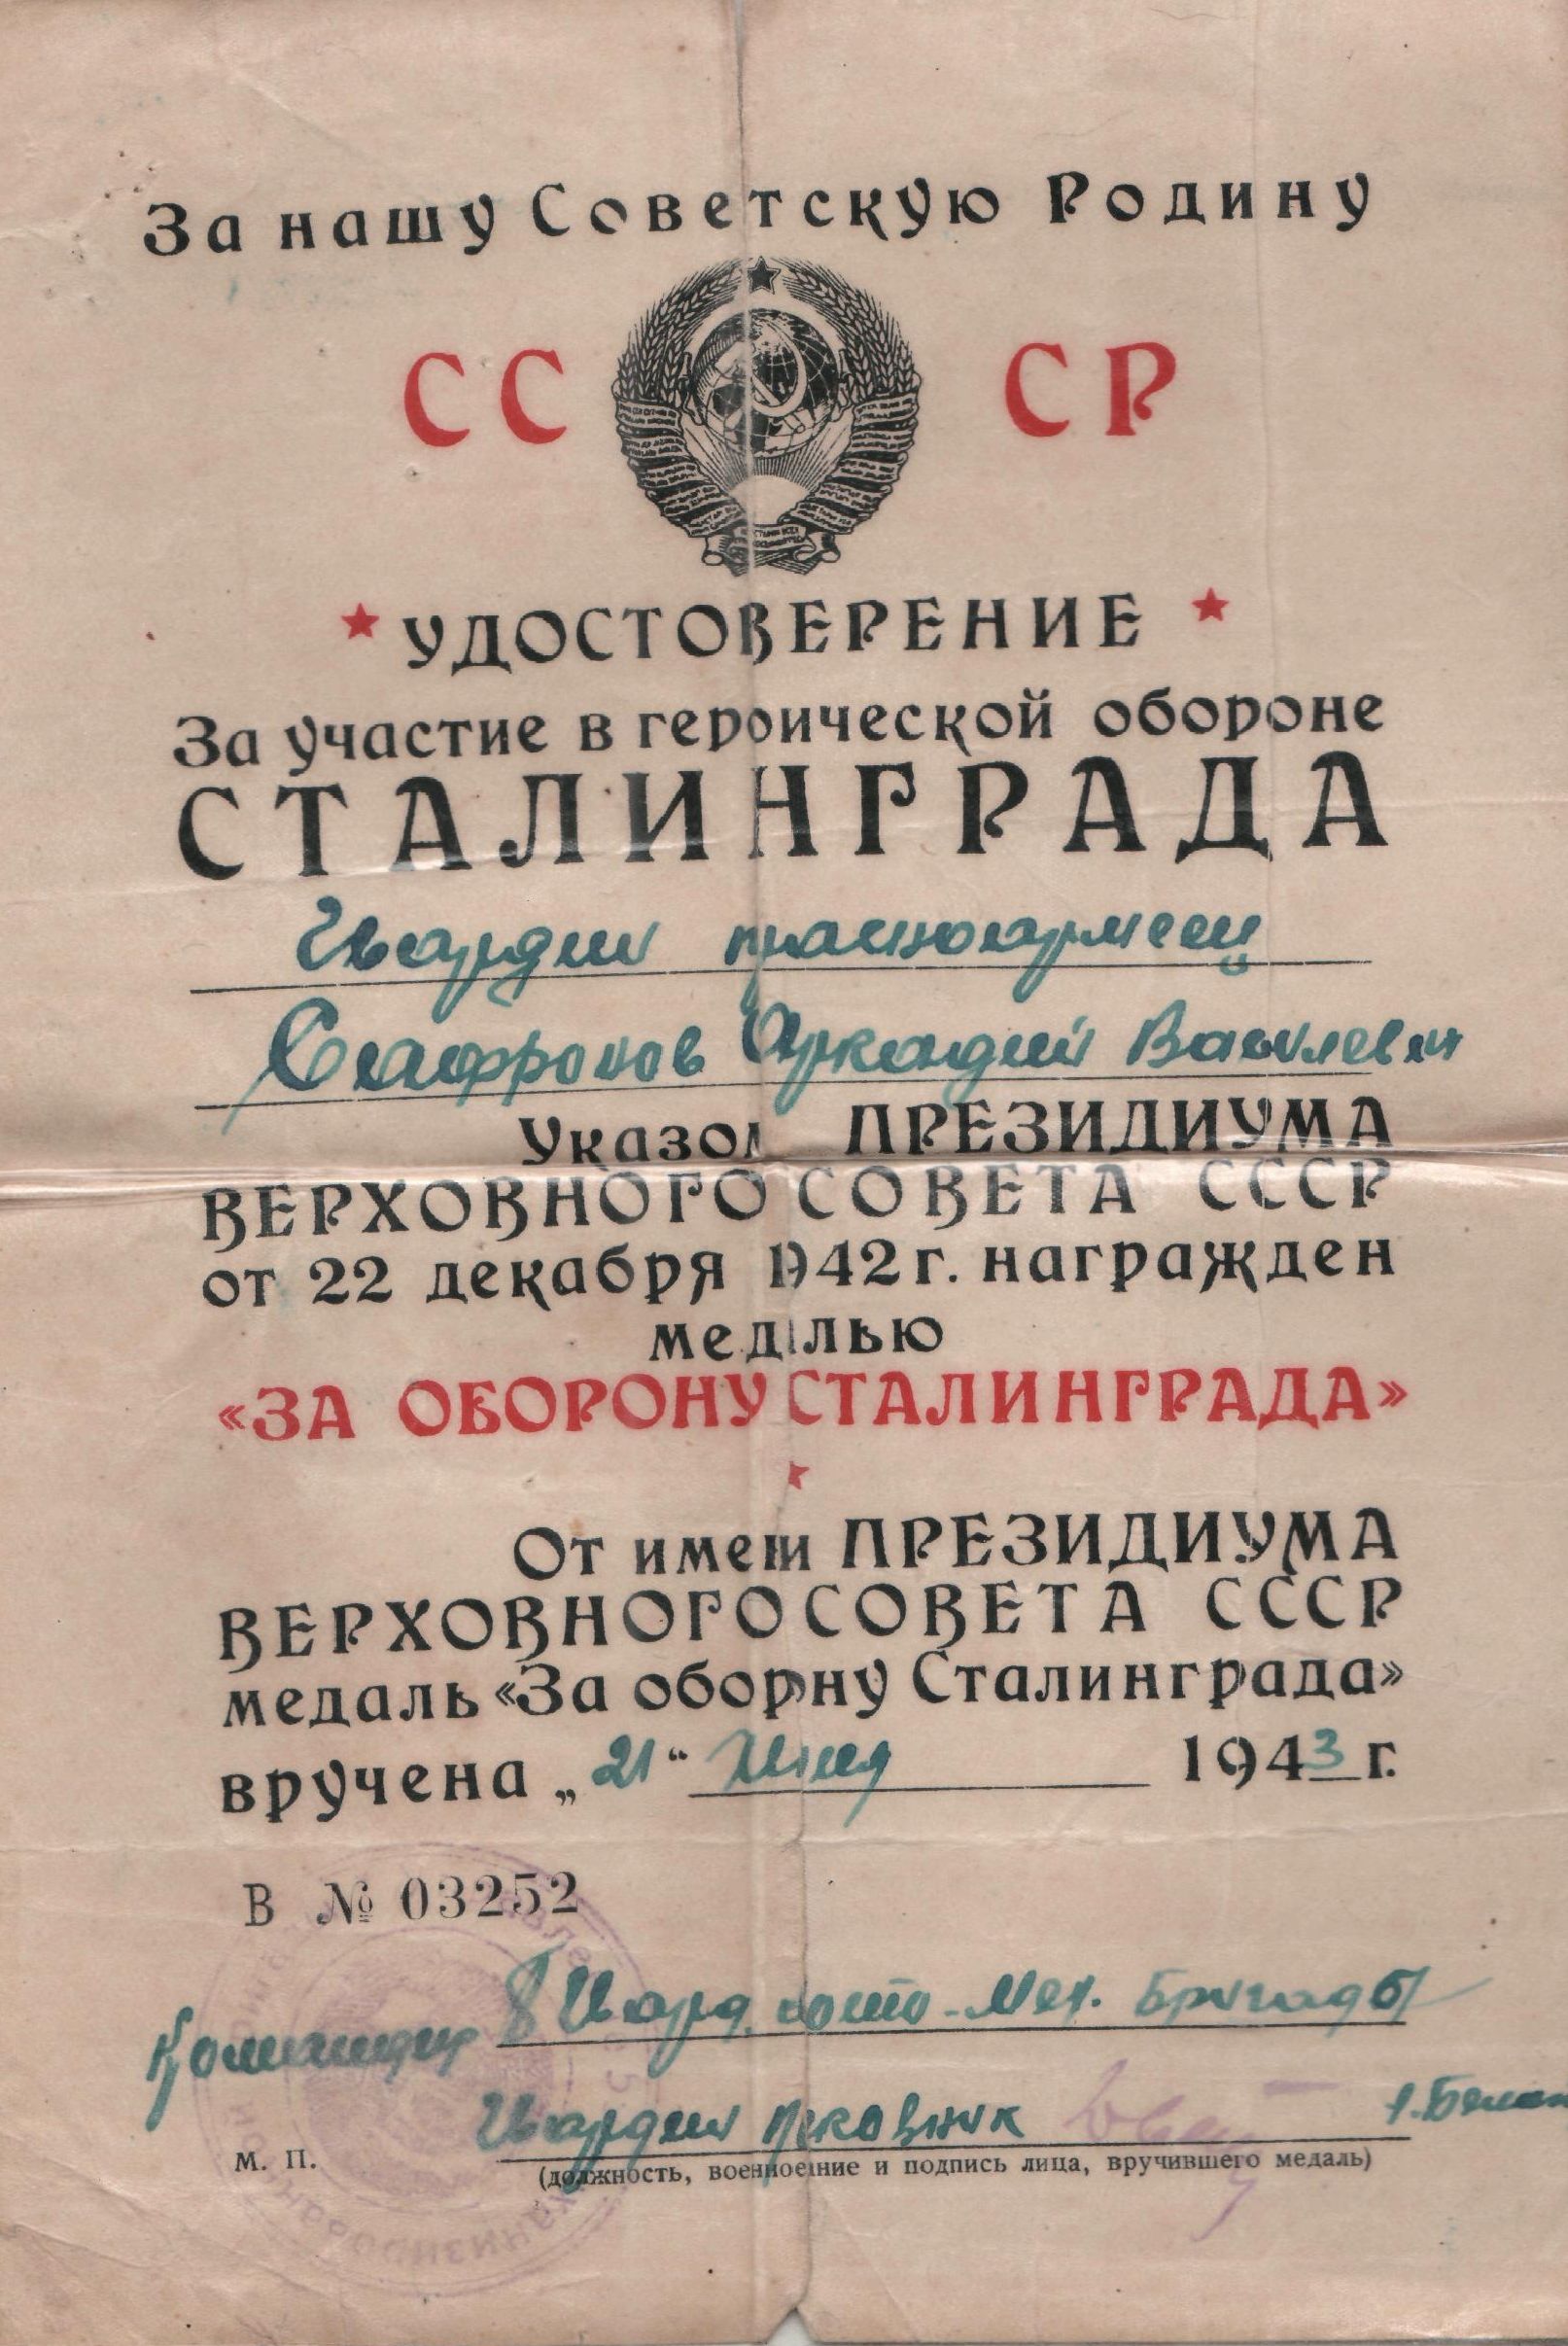 За нашу Советскую Родину
СС СР
УДОСТОВЕРЕНИЕ
За участие в героической обороне
СТАЛИНГРАДА
Гвардии красноармеец
Сафронов Аркадий Васильевич
Указом ПРЕЗИДИУМА
ВЕРХОВНОГО СОВЕТА СССР
от 22 декабря 1942 г. награжден
медалью
«ЗА ОБОРОНУ СТАЛИНГРАДА»
От имени ПРЕЗИДИУМА
ВЕРХОВНОГО СОВЕТА СССР
медаль «За оборону Сталинграда»
вручена „21“ 1943 г.
В № 03252
Командир 8 Гвард. мото-мех. Бригады
Гвардии
М. П.
(должность, военное звание и подпись лица, вручившего медаль)